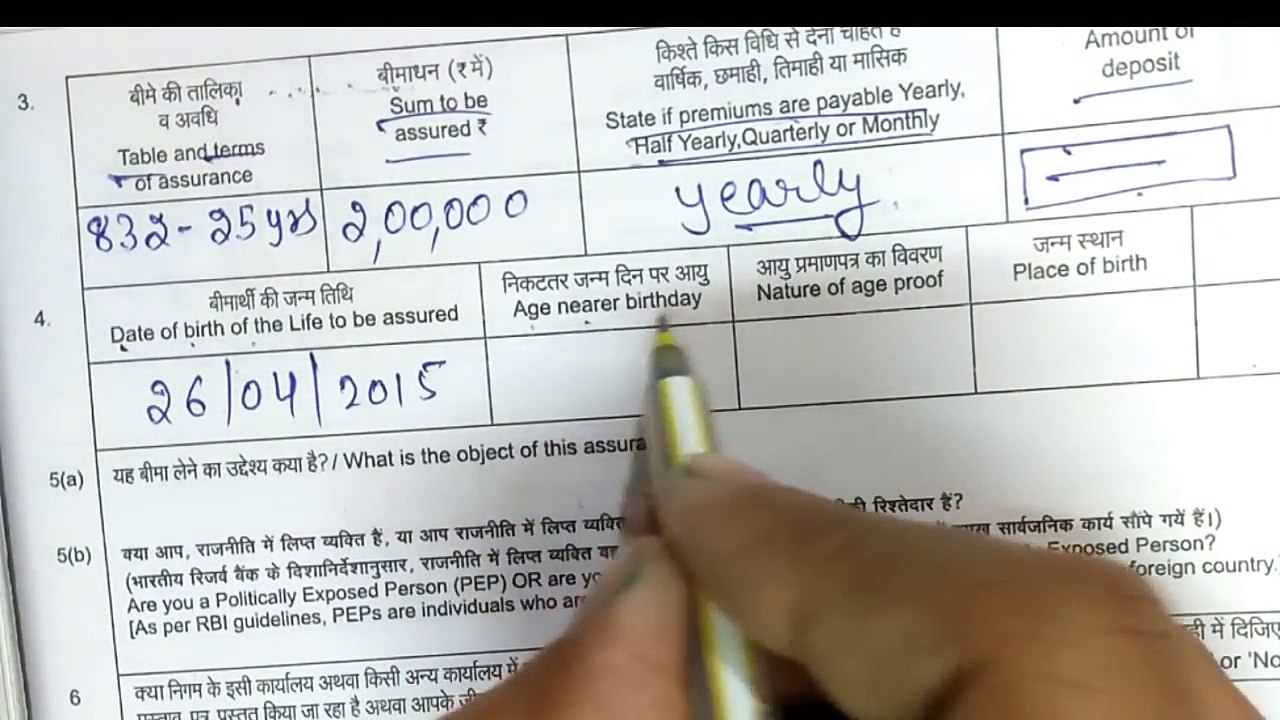 3.
बीमे की तालिका
व अवधि
Table and terms
of assurance
बीमाधन (₹ में)
Sum to be
assured ₹
किश्ते किस विधि से देना चाहते
वार्षिक, छमाही, तिमाही या मासिक
State if premiums are payable Yearly,
Half Yearly,Quarterly or Monthly
Amount of
deposit
832 - 25 yrs
2,00,000
yearly
4.
बीमार्थी की जन्म तिथि
Date of birth of the Life to be assured
निकटतर जन्म दिन पर आयु
Age nearer birthday
आयु प्रमाणपत्र का विवरण
Nature of age proof
जन्म स्थान
Place of birth
26/04/2015
5(a)
यह बीमा लेने का उद्देश्य कया है? / What is the object of this
5(b)
क्या आप, राजनीति में लिप्त व्यक्ति हैं, या आप राजनीति में लिप्त रिश्तेदार हैं?
(भारतीय रिजर्व बैंक के दिशानिर्देशानुसार, राजनीति में लिप्त व्यक्ति सार्वजनिक कार्य सौंपे गयें हैं।)
Are you a Politically Exposed Person (PEP) OR are Exposed Person?
[As per RBI guidelines, PEPs are individuals who foreign country.
6
क्या निगम के इसी कार्यालय अथवा किसी अन्य कार्यालय में में दिजिए
प्रस्ताव पत्र प्रस्तुत किया जा रहा है अथवा आपके or 'No